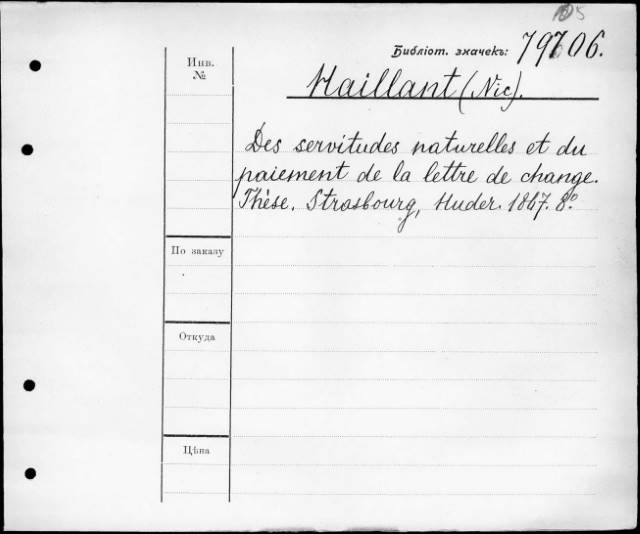 Библіот. значекъ: 79606.
Инв.
№
Haillant (Nic).
Des servitudes naturelles et du
paiement de la lettre de change.
Thèse. Strasbourg, Huder. 1867. 8º
По заказу
Откуда
Цѣна